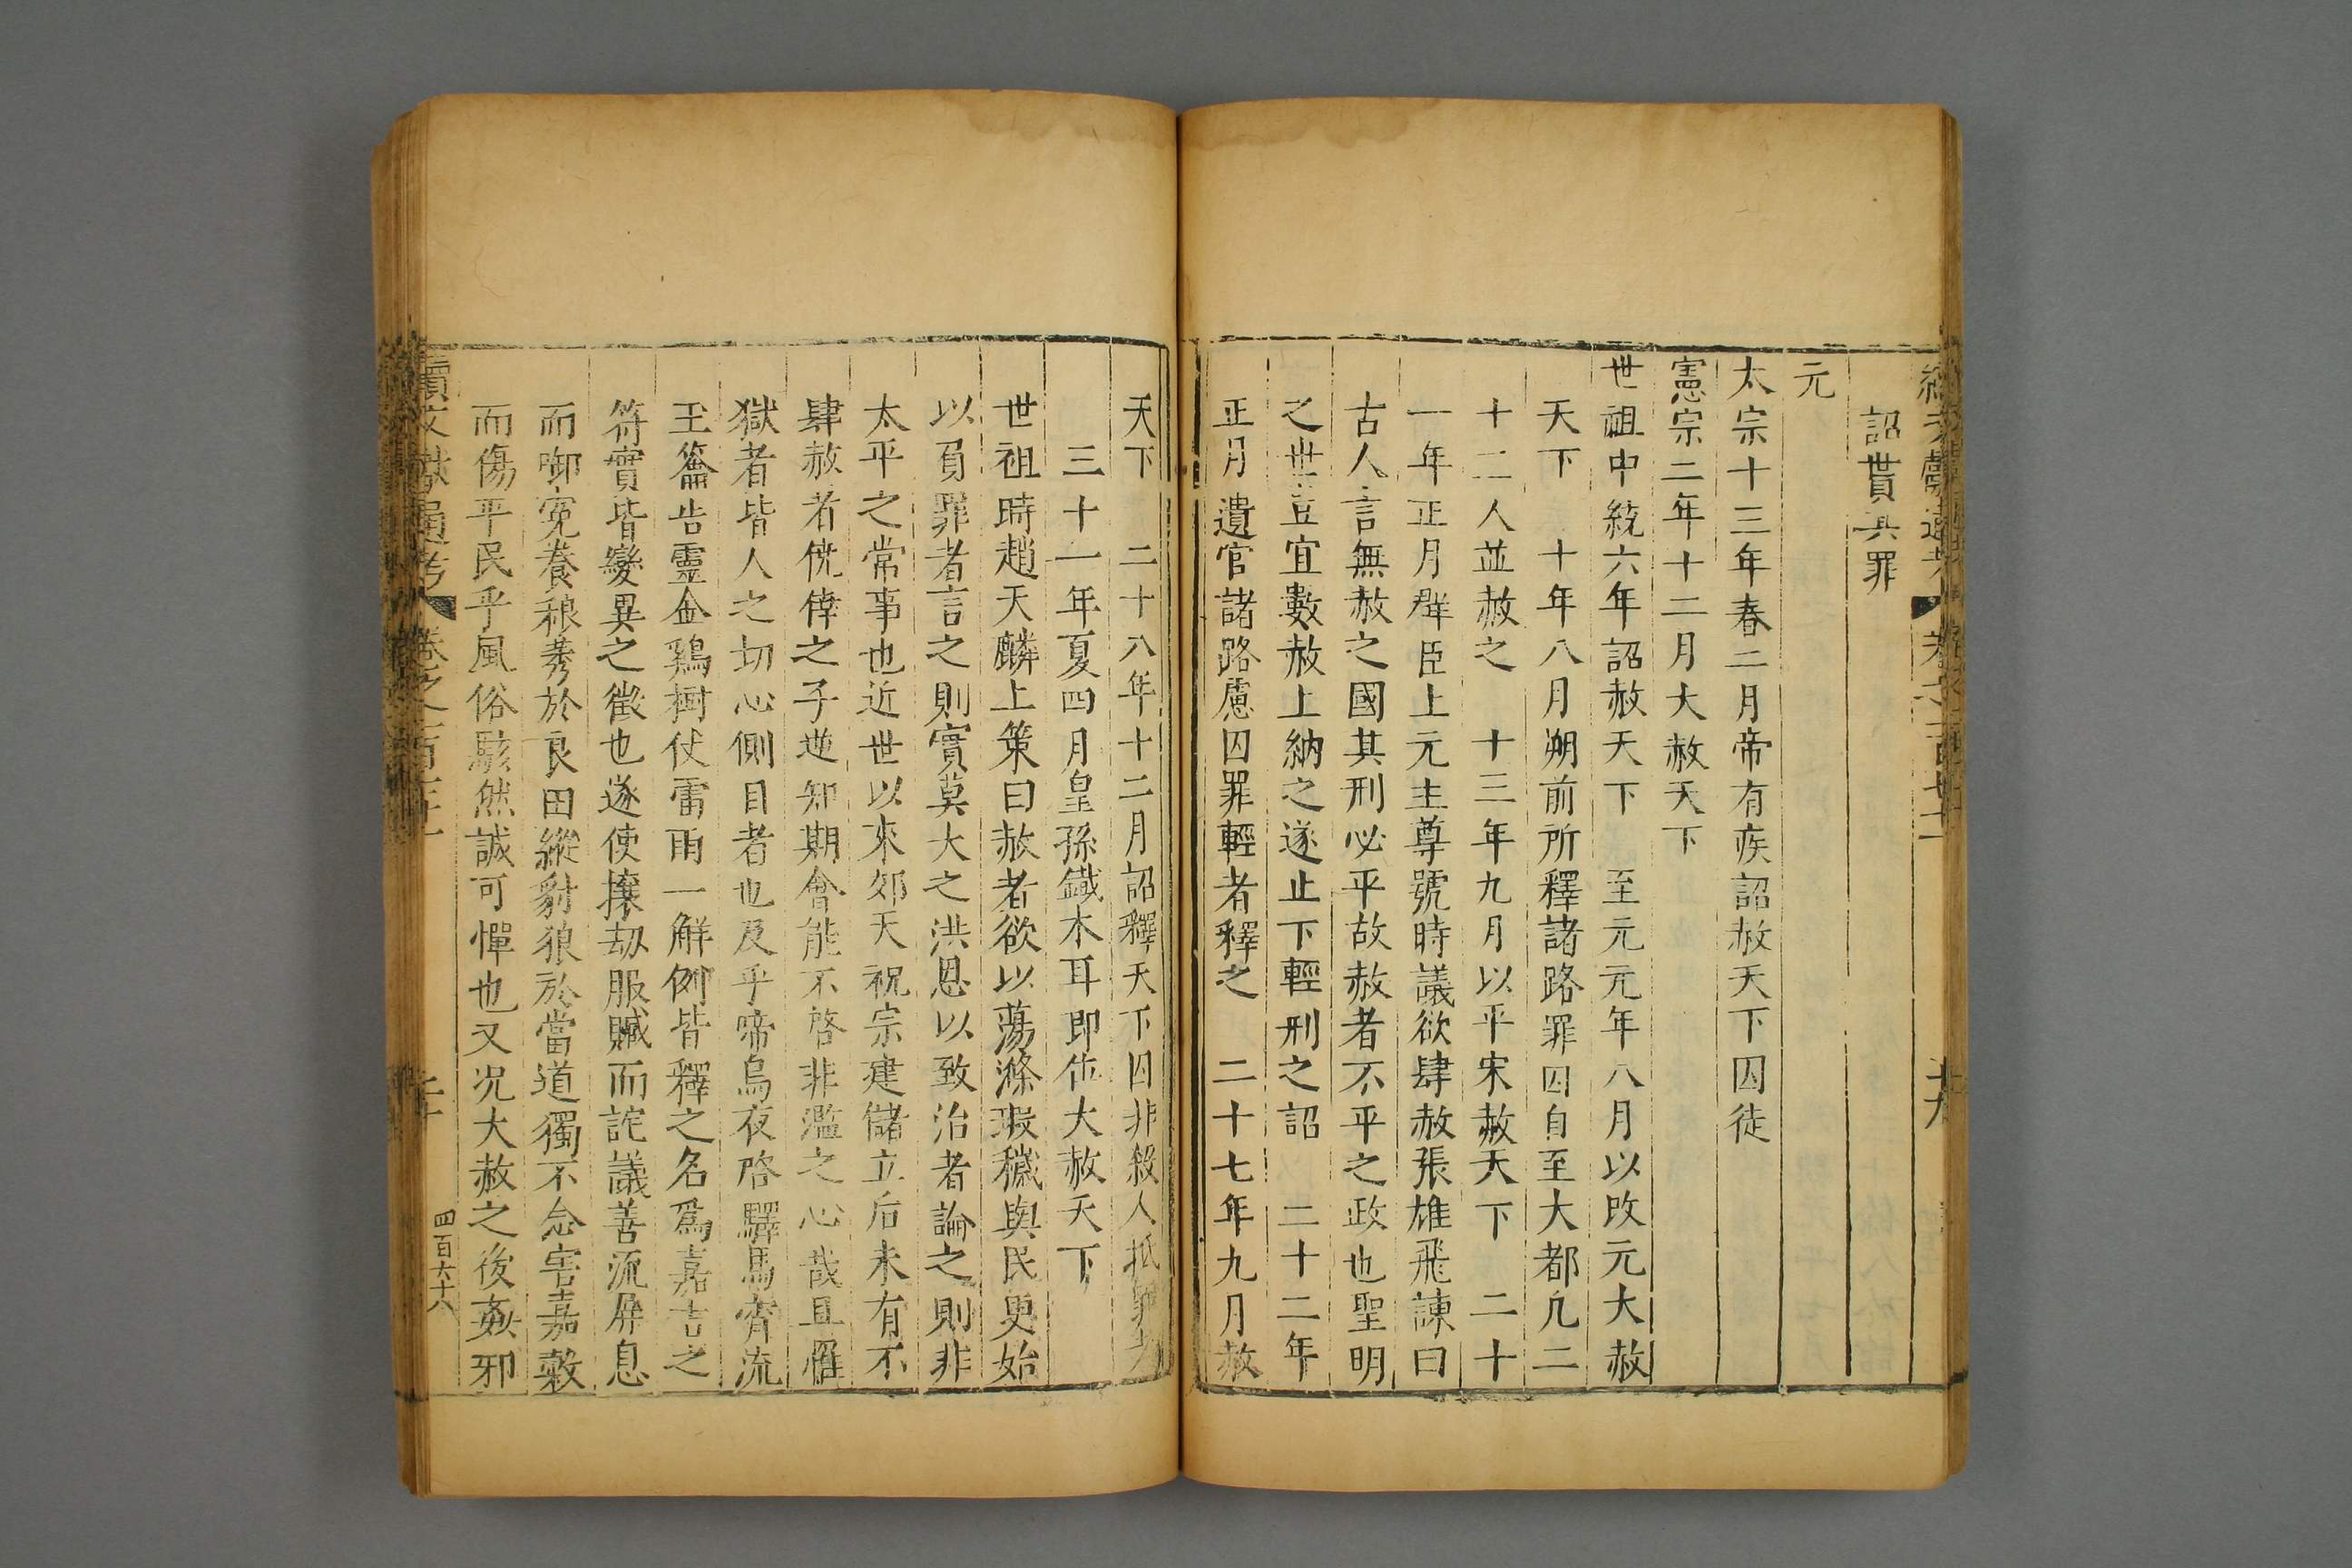 詔貰其罪
元
太宗十三年春二月帝有疾詔赦天下囚徒
憲宗二年十二月大赦天下
世祖中統六年詔赦天下　至元元年八月以改元大赦
天下　十年八月朔前所釋諸路罪囚自至大都凢二
十二人並赦之　十三年九月以平宋赦天下　二十
一年正月羣臣上元主尊號時議欲肆赦張雄飛諫曰
古人言無赦之國其刑必平故赦者不平之政也聖明
之世豈宜數赦上納之遂止下輕刑之詔　二十二年
正月遺官諸路慮囚罪輕者釋之　二十七年九月赦
天下　二十八年十二月詔釋天下囚非殺人抵罪者
三十一年夏四月皇孫鐵木耳即位大赦天下
世祖時趙天麟上策曰赦者欲以蕩滌瑕穢與民更始
以負罪者言之則實莫大之洪恩以致治者論之則非
太平之常事也近世以來郊天祝宗建儲立后未有不
肆赦者侥倖之子逆知期會能不啓非濫之心哉且罹
獄者皆人之切心側目者也及乎啼烏夜啓驛馬宵流
玉籥告靈金鷄樹仗雷雨一解例皆釋之名爲嘉吉之
符實皆變異之徵也遂使攘刼服贓而詫議善流屏息
而啣寃養稂莠於良田縱豺狼於當道獨不念害嘉榖
而傷平民乎風俗駭然誠可憚也又况大赦之後姦邪
續文獻通考　卷之一百
四百六十八